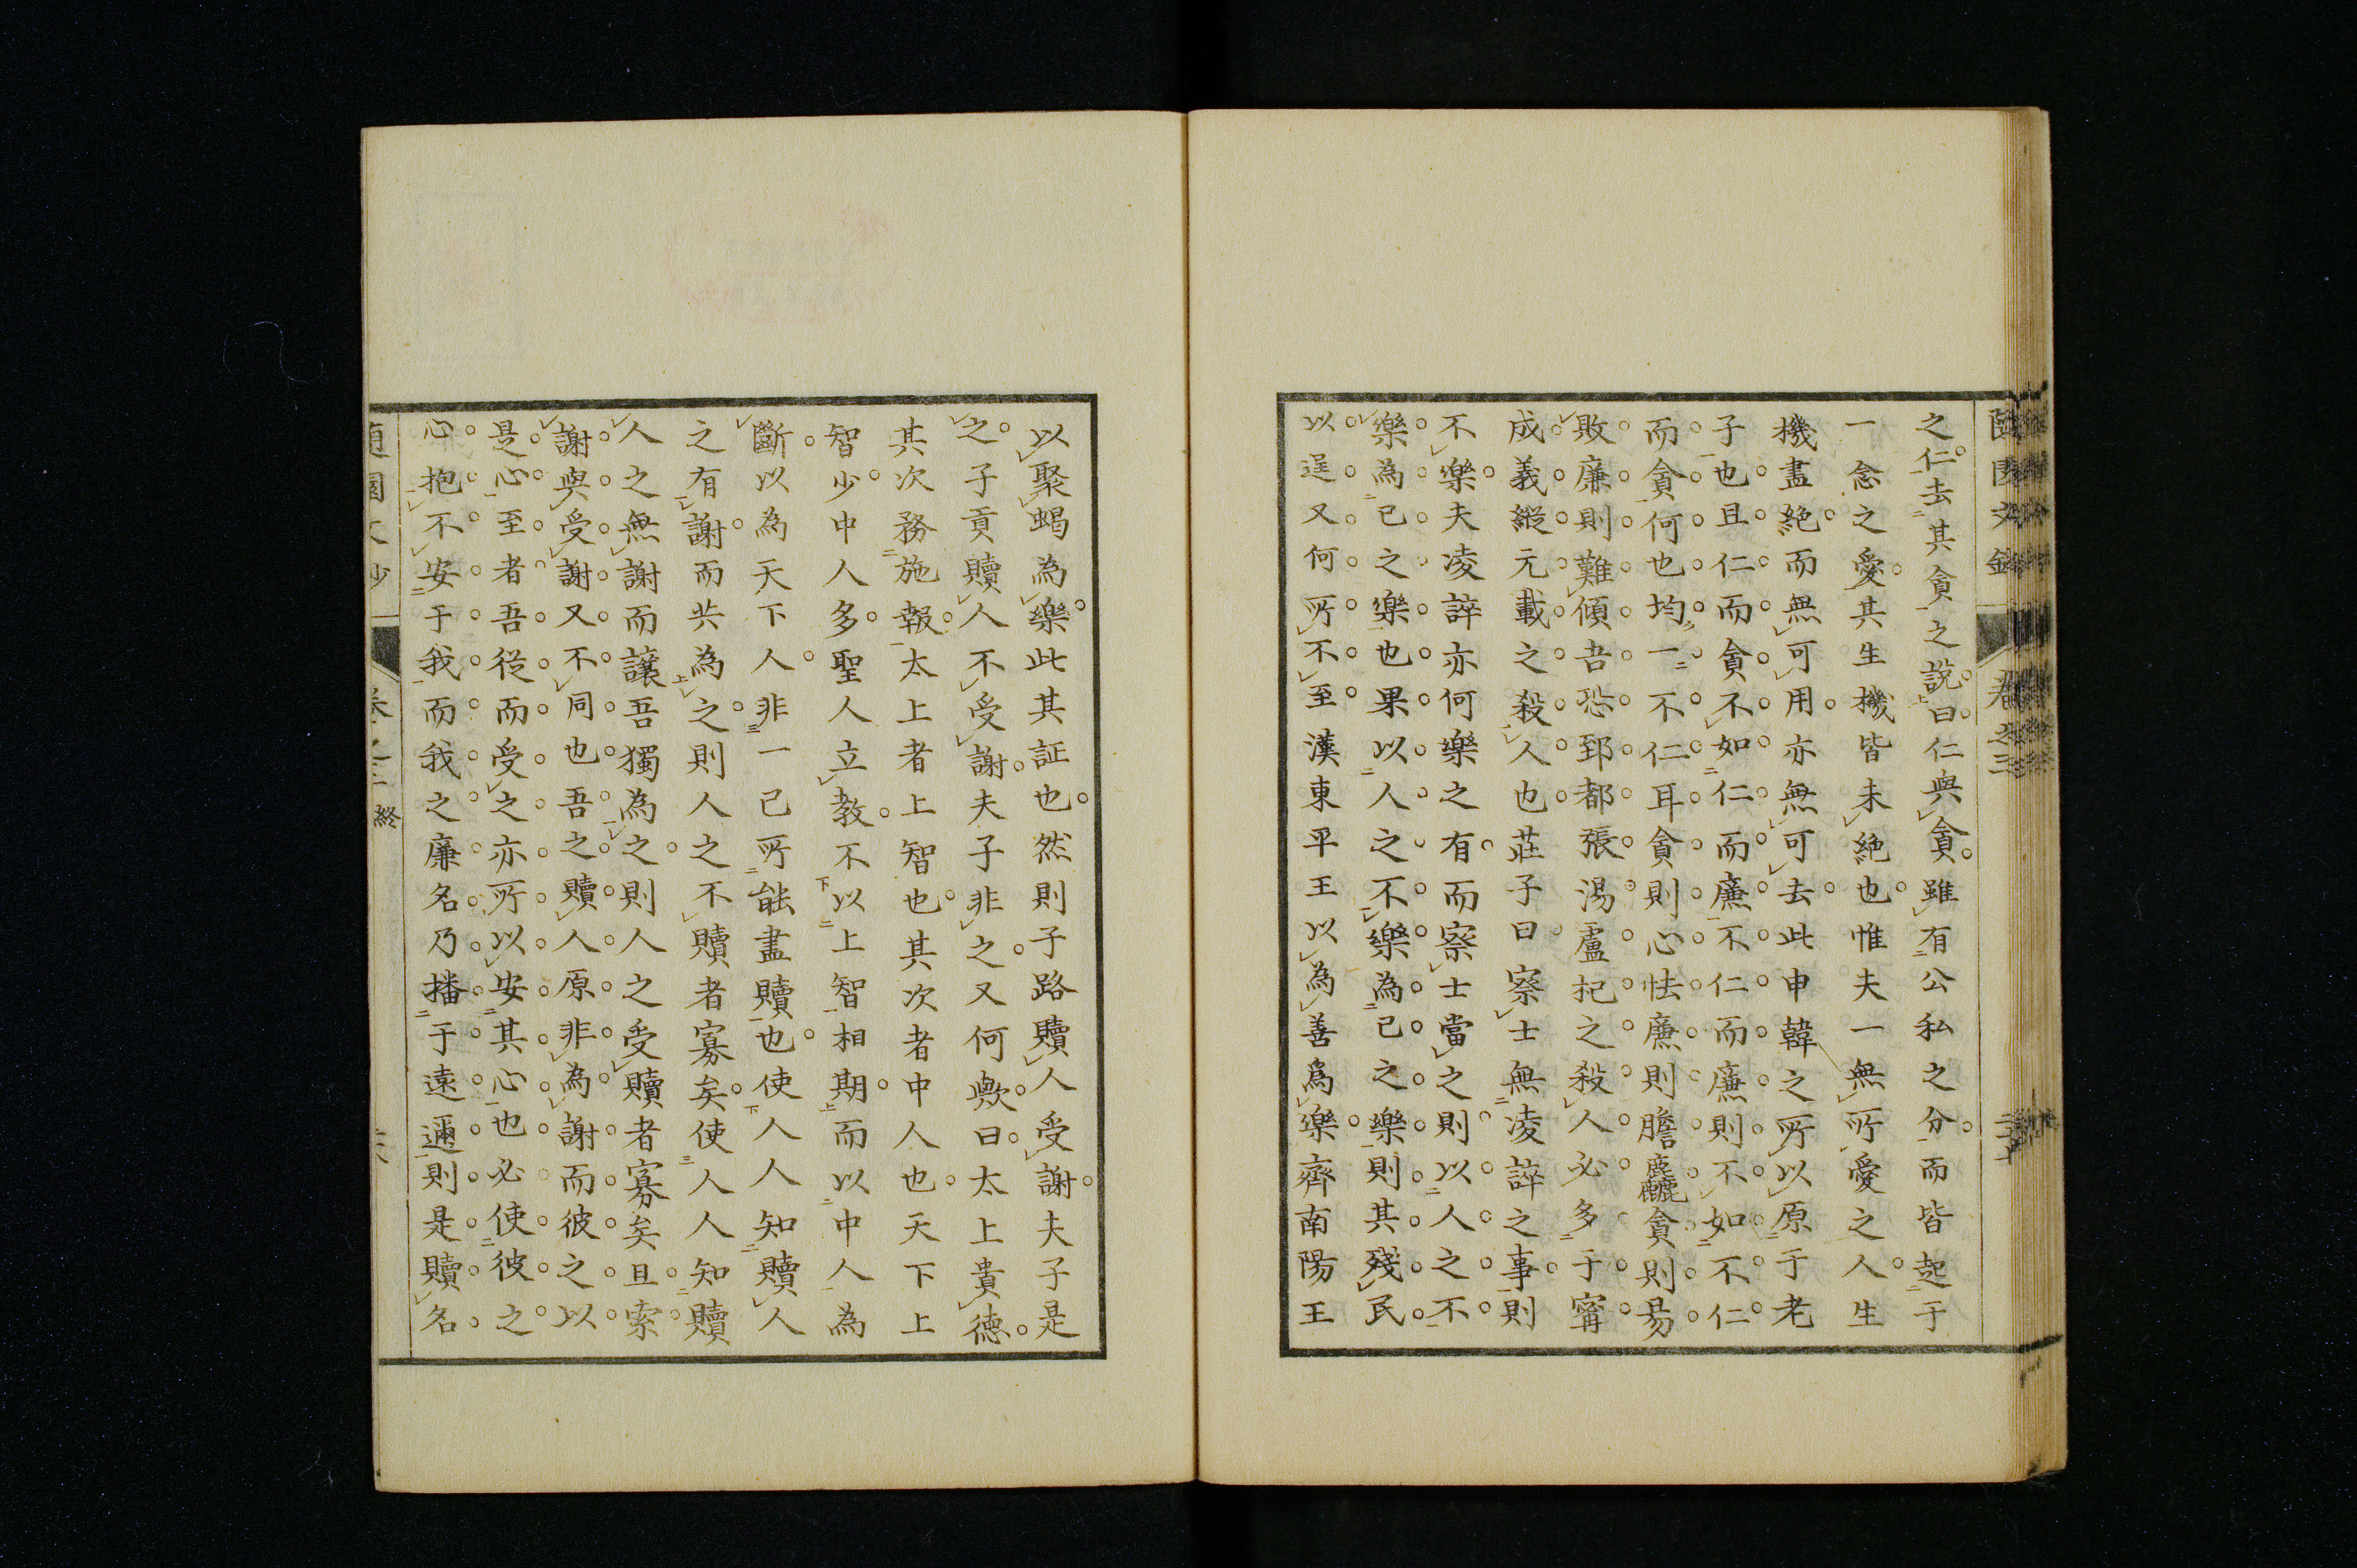 之仁去其貪之說曰仁與貪雖有公私之分而皆起于
一念之愛其生機皆未絶也惟夫一無所愛之人生
機盡絶而無可用亦無可去此申韓之所以原于老
子也且仁而貪不如仁而廉不仁而廉則不如不仁
而貪何也均一不仁耳貪則心怯廉則膽麤貪則易
敗廉則難傾吾恐郅都張湯盧杞之殺人必多于甯
成義縱元載之殺人也莊子曰察士無凌誶之事則
不樂夫凌誶亦何樂之有而察士當之則以人之不
樂為己之樂也果以人之不樂為己之樂則其殘民
以逞又何所不至漢東平王以為善為樂齊南陽王
以聚蝎為樂此其証也然則子路贖人受謝夫子是
之子貢贖人不受謝夫子非之又何歟曰太上貴德
其次務施報太上者上智也其次者中人也天下上
智少中人多聖人立教不以上智相期而以中人為
斷以為天下人非一己所能盡贖也使人人知贖人
之有謝而共為之則人之不贖者寡矣使人人知贖
人之無謝而讓吾獨為之則人之受贖者寡矣且索
謝與受謝又不同也吾之贖人原非為謝而彼之以
是心至者吾從而受之亦所以安其心也必使彼之
心抱不安于我而我之廉名乃播于遠邇則是贖名
卷之三終